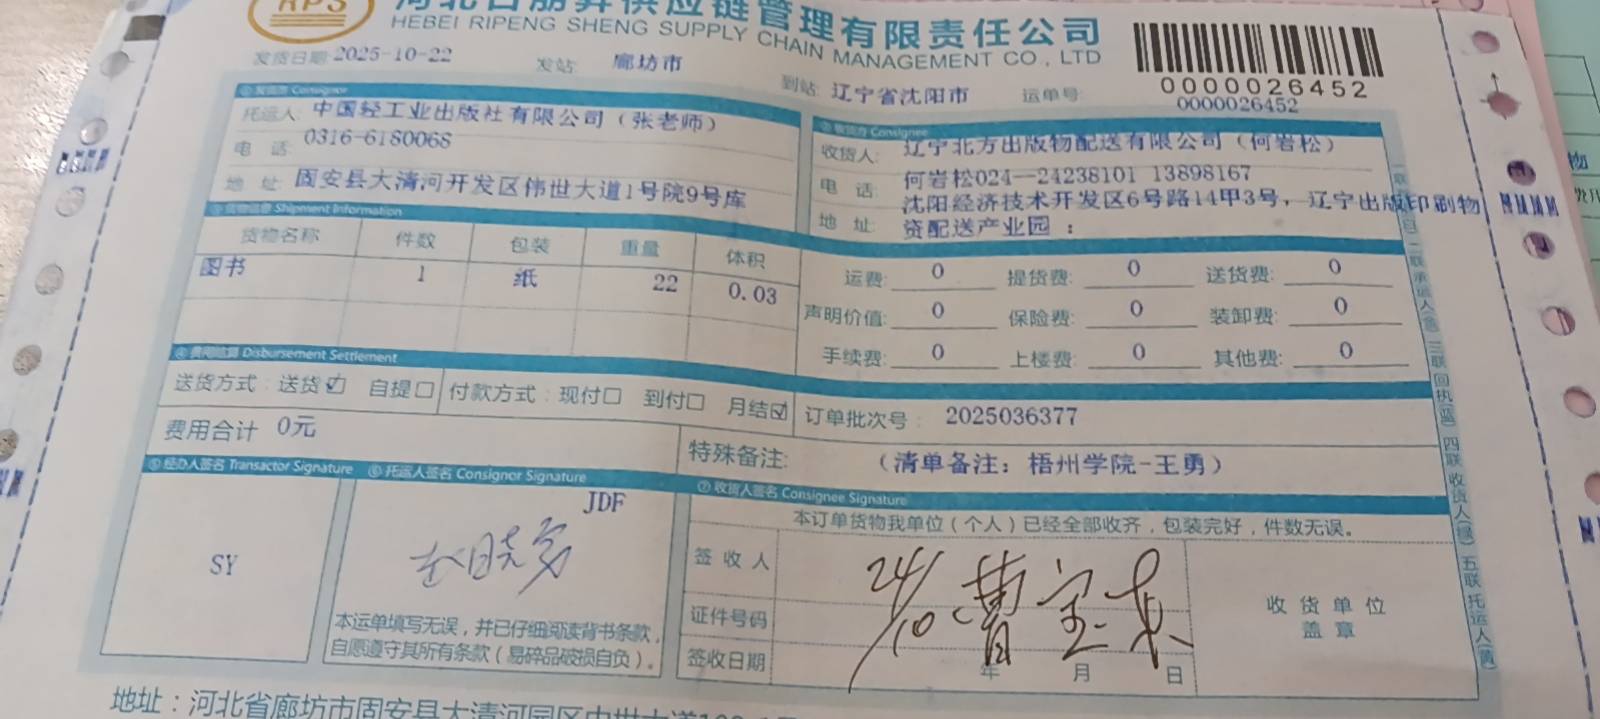 RPS
河北日朋昇供应链管理有限责任公司
HEBEI RIPENG SHENG SUPPLY CHAIN MANAGEMENT CO., LTD
0000026452
发货日期 2025-10-22 发站: 廊坊市 到站: 辽宁省沈阳市 运单号: 0000026452
① 发货方 Consignor
托运人: 中国轻工业出版社有限公司（张老师）
电 话: 0316-6180068
地 址: 固安县大清河开发区伟世大道1号院9号库
② 收货方 Consignee
收货人: 辽宁北方出版物配送有限公司（何岩松）
电 话: 何岩松024—24238101 13898167
地 址: 沈阳经济技术开发区6号路14甲3号，辽宁出版印刷物
资配送产业园 ：
③ 货物信息 Shipment Information
货物名称 件数 包装 重量 体积
图书 1 纸 22 0.03
运费: 0 提货费: 0 送货费: 0
声明价值: 0 保险费: 0 装卸费: 0
手续费: 0 上楼费: 0 其他费: 0
④ 费用结算 Disbursement Settlement
送货方式：送货☑ 自提□ 付款方式：现付□ 到付□ 月结☑ 订单批次号： 2025036377
费用合计 0元
特殊备注: （清单备注：梧州学院-王勇）
⑤ 经办人签名 Transactor Signature ⑥ 托运人签名 Consignor Signature
⑦ 收货人签名 Consignee Signature
SY
JDF
本运单填写无误，并已仔细阅读背书条款，
自愿遵守其所有条款（易碎品破损自负）。
本订单货物我单位（个人）已经全部收齐，包装完好，件数无误。
签 收 人
证件号码
签收日期 年 月 日
24/10
收 货 单 位
盖 章
二联承运人(金) 三联回执(蓝) 四联收货人(绿) 五联托运人(黄)